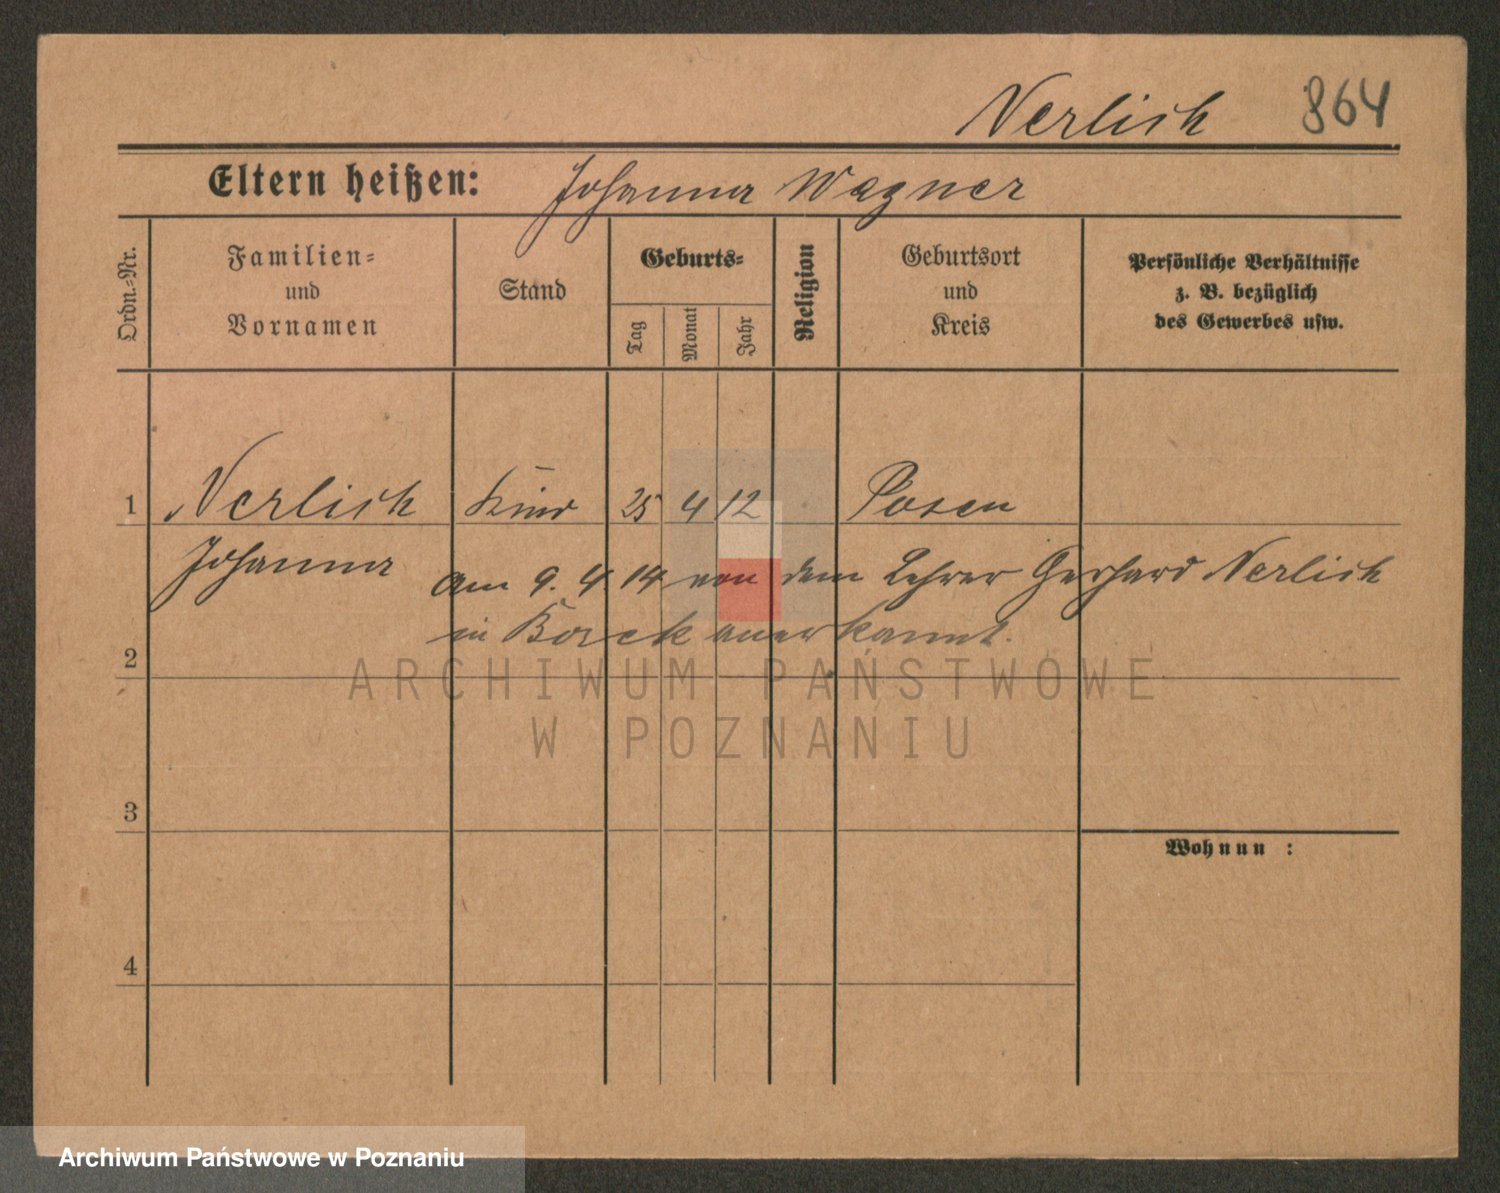 Nerlich 864
Eltern heißen: Johanna Wagner
Ordn.-Nr.
Familien-
und
Vornamen
Stand
Geburts-
Tag
Monat
Jahr
Religion
Geburtsort
und
Kreis
Persönliche Verhältnisse
z. B. bezüglich
des Gewerbes usw.
1 Nerlich Kind 25 4 12 Posen
Johanna am 9. 4. 14 von dem Lehrer Gerhard Nerlich
in Borek anerkannt.
2
ARCHIWUM PAŃSTWOWE
W POZNANIU
3
Wohnun :
4
Archiwum Państwowe w Poznaniu